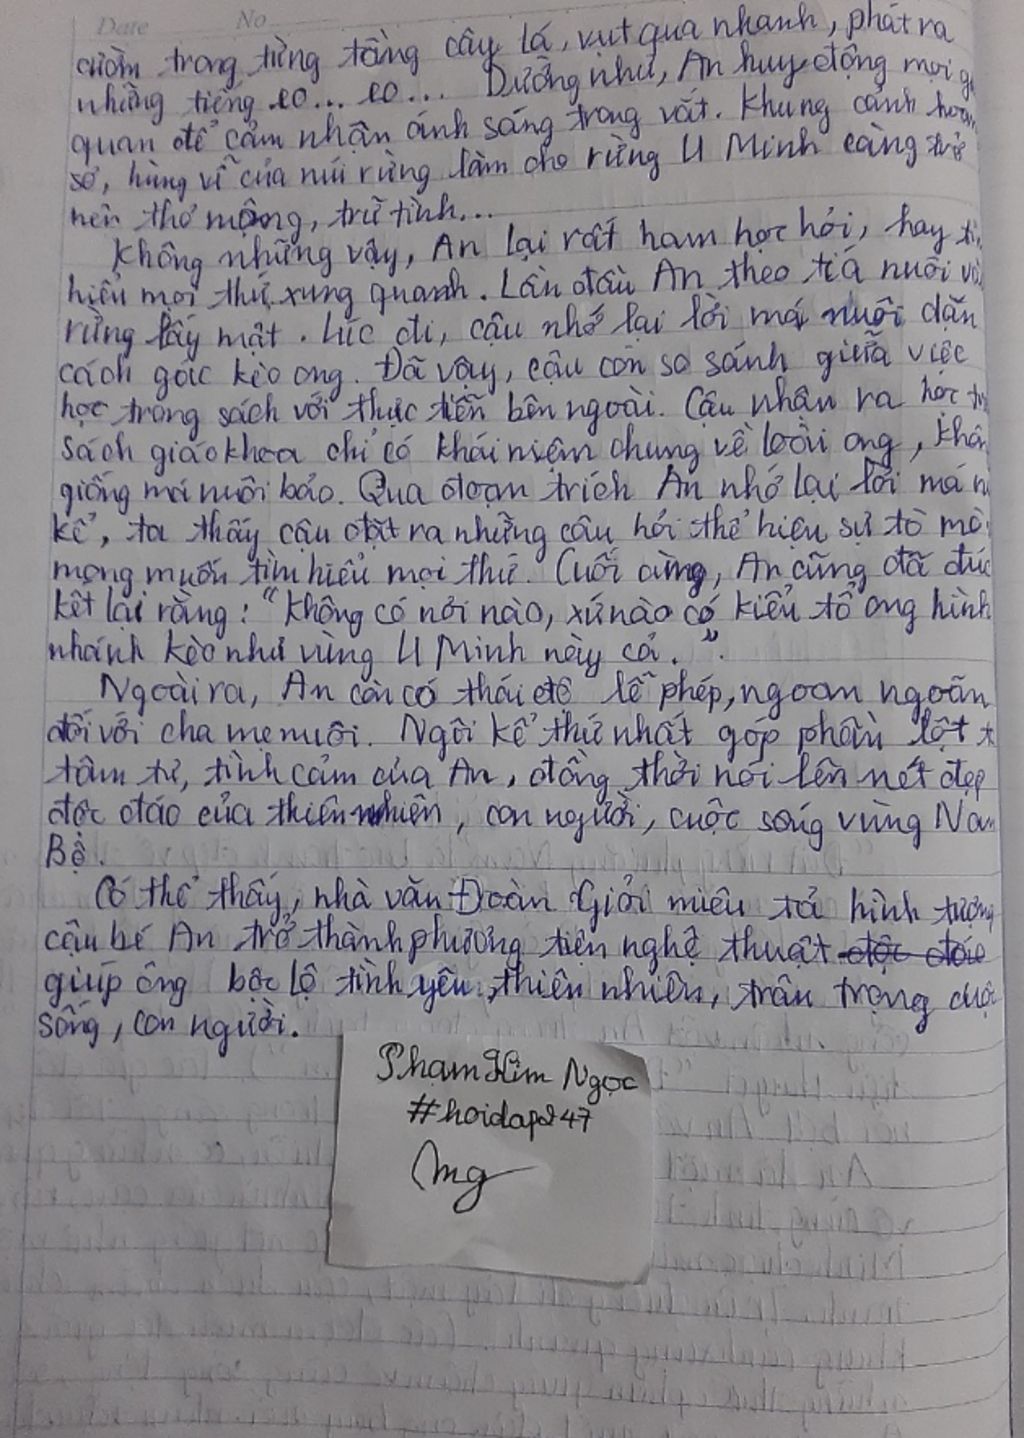 Date No
cườm trong từng tầng cây lá, vụt qua nhanh, phát ra
những tiếng eo... eo... Dường như, An huy động mọi
quan để cảm nhận ánh sáng trong vắt. Khung cảnh hoang
sơ, hùng vĩ của núi rừng làm cho rừng U Minh càng trở
nên thơ mộng, trữ tình...
Không những vậy, An lại rất ham học hỏi, hay
hiểu mọi thứ xung quanh. Lần đầu An theo tía nuôi
rừng lấy mật. Lúc đi, cậu nhớ lại lời má nuôi dặn
cách gác kèo ong. Đã vậy, cậu còn so sánh giữa việc
học trong sách với thực tiễn bên ngoài. Cậu nhận ra học
sách giáo khoa chỉ có khái niệm chung về loài ong, khôn
giống má nuôi bảo. Qua đoạn trích An nhớ lại lời má n
kể, ta thấy cậu đặt ra những câu hỏi thể hiện sự tò mò
mong muốn tìm hiểu mọi thứ. Cuối cùng, An cũng đã đúc
kết lại rằng: "Không có nơi nào, xứ nào có kiểu tổ ong hình
nhánh kèo như vùng U Minh này cả.".
Ngoài ra, An còn có thái độ lễ phép, ngoan ngoãn
đối với cha mẹ nuôi. Ngôi kể thứ nhất góp phần lột t
tâm tư, tình cảm của An, đồng thời nói lên nét đẹp
độc đáo của thiên nhiên, con người, cuộc sống vùng Nam
Bộ.
Có thể thấy, nhà văn Đoàn Giỏi miêu tả hình tượng
cậu bé An trở thành phương tiện nghệ thuật độc đáo
giúp ông bộc lộ tình yêu, thiên nhiên, trân trọng cuộc
sống, con người.
Phạm Kim Ngọc
#hoidap247
Mg